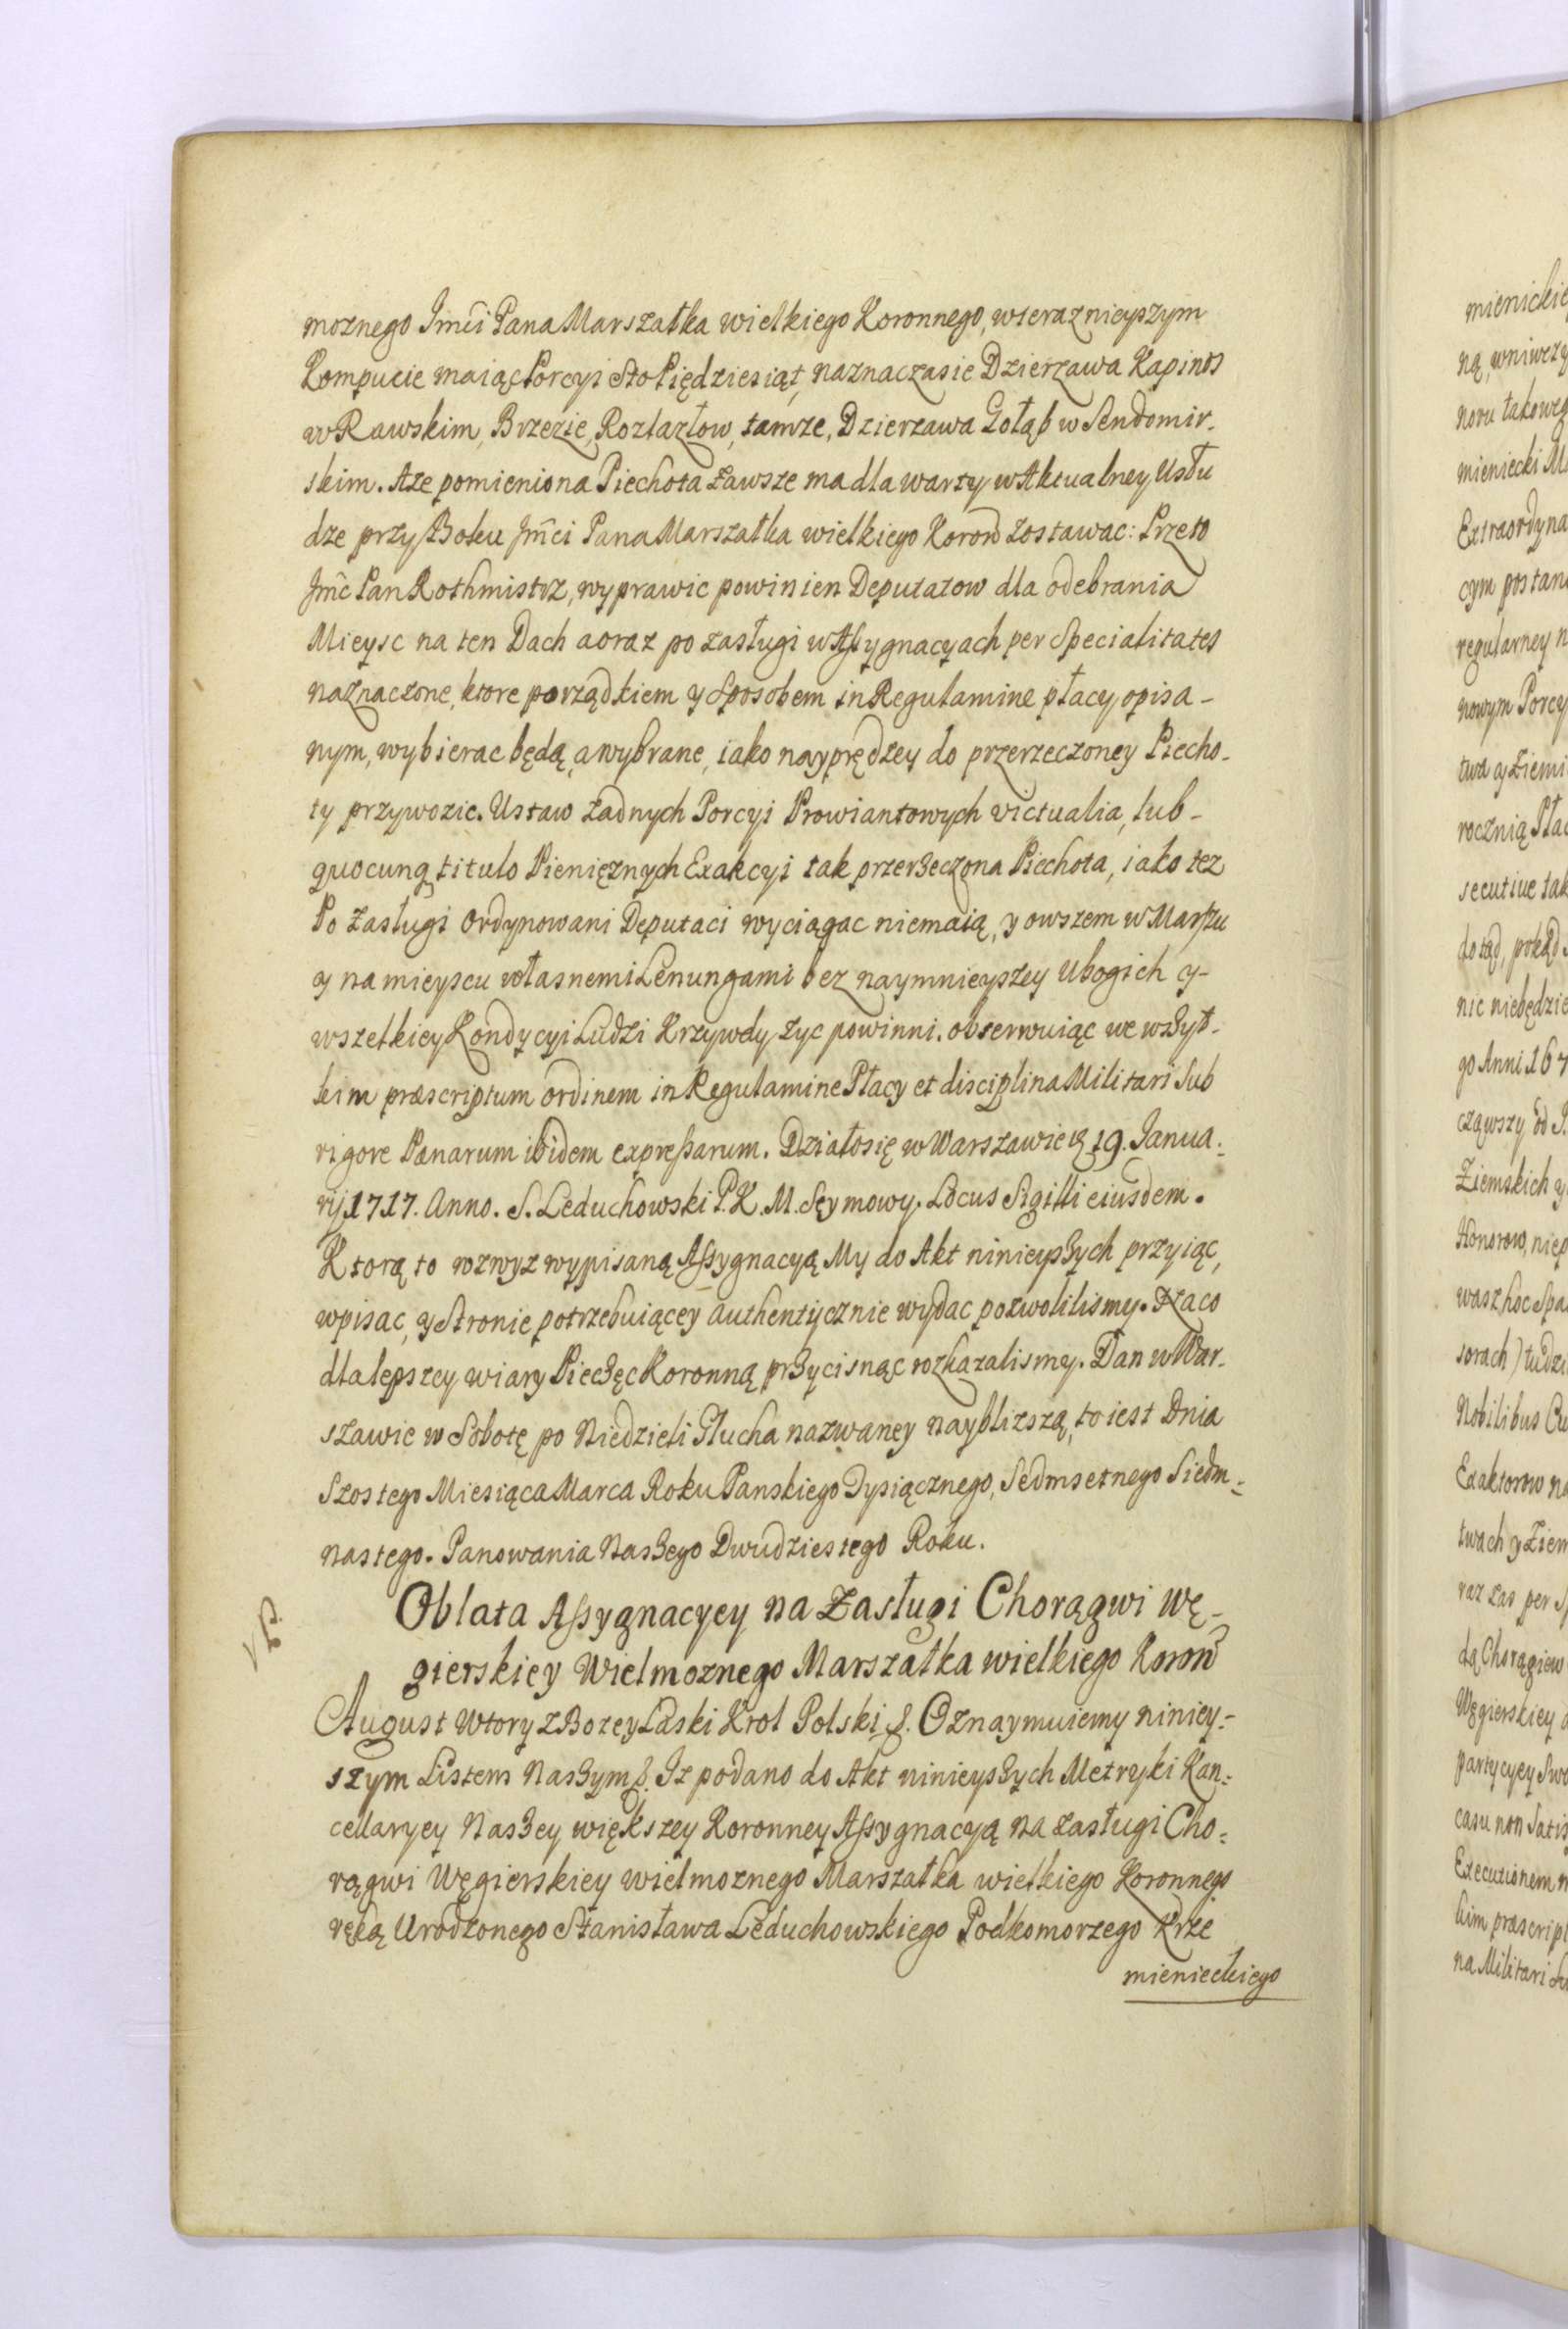 moznego Jmći Pana Marszałka wielkiego Koronnego, w teraznieyszym
Kompucie maiąc Porcyi Sto Piędziesiąt, naznaczasie Dzierzawa Kapinos
w Rawskim, Brzezie, Rozłazłow, tamze, Dzierzawa Gołąb w Sendomir-
skim. A ze pomieniona Piechota zawsze ma dla warty w Aktualney Usłu
dze przy Boku Jmći Pana Marszałka wielkiego Koron zostawac: Przeto
Jmć Pan Rothmistrz, wyprawic powinien Deputatow dla odebrania
Mieysc na ten Dach a oraz po zasługi w Assygnacyach per Specialitates
naznaczone, ktore porządkiem y Sposobem in Regulamine płacy opisa-
nym, wybierac będą, a wybrane, iako nayprędzey do przerzeczoney Piecho-
ty przywozic. Ustaw zadnych Porcyi Prowiantowych victualia, lub-
quocunq titulo Pienięznych Exakcyi tak przerzeczona Piechota, iako tez
Po zasługi Ordynowani Deputaci wyciągac niemaią, y owszem w Marszu
y na mieyscu własnemi Lenungami bez naymnieyszey Ubogich y-
wszelkiey Kondycyi Ludzi Krzywdy zyc powinni. obserwuiąc we wszyt-
kim præscriptum ordinem in Regulamine Płacy et disciplina Militari Sub
rigore Pænarum ibidem expressarum. Działosię w Warszawie D 19. Janua-
rij 1717. Anno. S. Leduchowski P. K. M. Seymowy. Locus Sigilli eiusdem.
Ktorą to wzwyz wypisaną Assygnacyą My do Akt ninieyszych przyiąc,
wpisac, y Stronie potrzebuiącey authentycznie wydac pozwolilismy. Na co
dla lepszey wiary Pieczęc Koronną przycisnąc rozkazalismy. Dan w War-
szawie w Sobotę po Niedzieli Głucha nazwaney naybliszszą, to iest Dnia
Szostego Miesiąca Marca Roku Panskiego Tysiącznego, Sedmsetnego Siedm-
nastego. Panowania Naszego Dwudziestego Roku.
Oblata Assygnacyey na Zasługi Chorągwi Wę-
gierskiey Wielmoznego Marszałka wielkiego Koron
August Wtory z Bozey Łaski Krol Polski &. Oznaymuiemy niniey-
szym Listem Naszym &. Iz podano do Akt ninieyszych Metryki Kan-
cellaryey Naszey większey Koronney Assygnacyą na zasługi Cho-
rągwi Węgierskiey wielmoznego Marszałka wielkiego Koronnego
ręką Urodzonego Stanisława Leduchowskiego Podkomorzego Krze
mienieckiego
mienickie
ną, wniwczy
noru takowe
mieniecki Ma
Extraordyna
cym postan
regularney n
nowym Porcy
twa y Ziemi
roczną Płac
secutive tak
dotąd, pokąd
nic niebędzie
go Anni 167
cząwszy od
Ziemskich y
Honorow, niep
wasz hoc Spa
sorach) tudzi
Nobilibus Cu
Exaktorow na
twach y Ziem
raz zas per Sp
dą Chorągiew
Węgierskiey
partycyey Swo
casu non Satis
Executionem m
kim præscript
na Militari Su